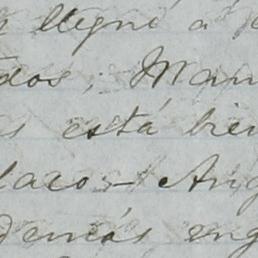 llegué á
dos; Man
s está bien
laro — Ang
demás eng